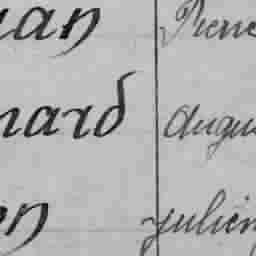 uan Pierre
nard Augus
on Julien